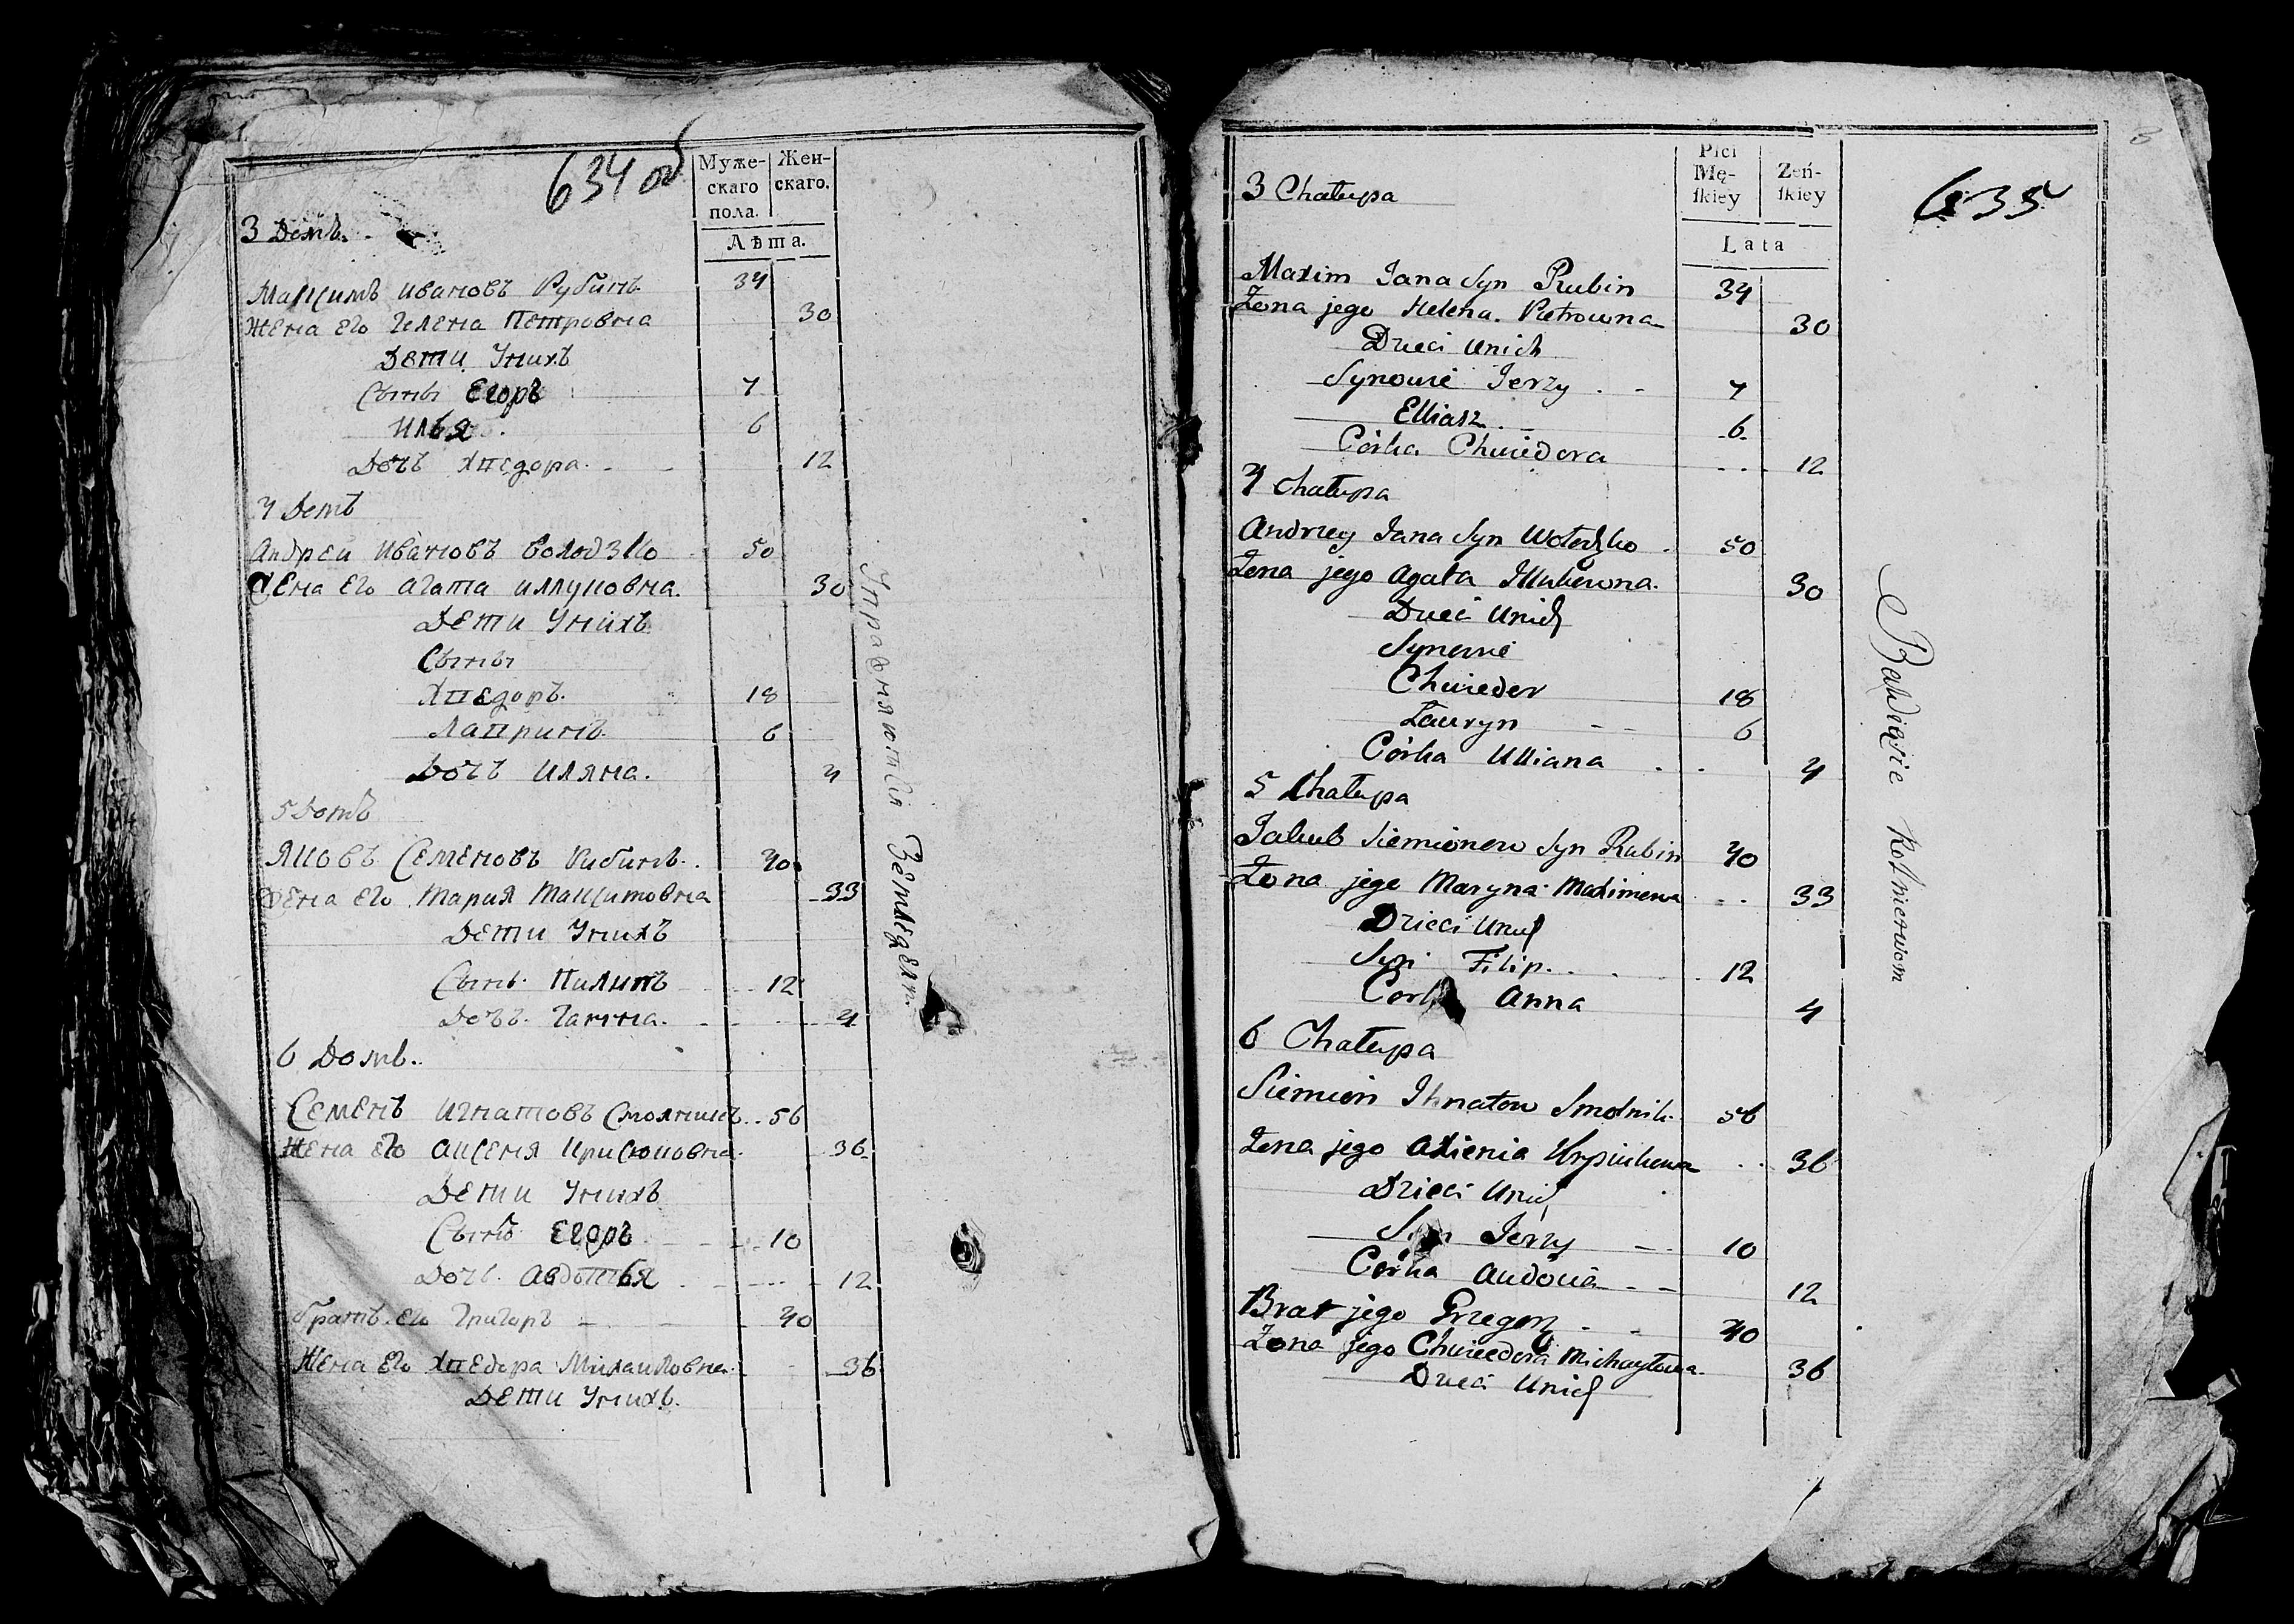 634 об
Муже-
скаго
пола.
Жен-
скаго.
Лѣта.
3 Домъ.
Максимъ Ивановъ Рубинъ 34
Жена Его Гелена Петровна 30
Дети Унихъ
Сыны Егоръ 7
Илья 6
Дочь Хпедора 12
4 Домъ
Андрей Ивановъ Володзко 50
Жена Его Агата Иллуковна 30
Дети Унихъ
Сыны
Хпедоръ 18
Лапринъ 6
Дочъ Иляна. 4
5 Домъ
Яковъ Семеновъ Рибинъ 40
Жена Его Мария Максимовна 33
Дети Унихъ
Сынъ Пилипъ 12
Дочъ Ганна. 4
6 Домъ.
Семенъ Игнатовъ Смолникъ 56
Жена Его Аксеня 36
Дети Унихъ
Сынъ Егоръ 10
Дочь Авдотья 12
Братъ Его Григоръ 40
Жена Его Хпедора Михаиловна 36
Дети Унихъ.
Упражняютця Земледелі
635
Płci
Mę-
ſkiey
Zeń-
ſkiey
Lata
3 Chałupa
Maxim Jana Syn Rubin 34
Żona jego Helena Pietrowna 30
Dzieci Unich
Synowie Jerzy 7
Elliasz 6
Córka Chwiedora 12
4 Chałupa
Andrzey Jana Syn Wołodzko 50
Żona jego Agata Illukowna 30
Dzieci Unich
Synowie
Chwieder 18
Łauryn 6
Córka Ulliana 4
5 Chałupa
Jakub Siemionow Syn Rubin 40
Żona jego Maryna Maximowa 33
Dzieci Unich
Syn Filip 12
Corka Anna 4
6 Chałupa
Siemion Ihnatow Smolnik 56
Żona jego Axienia 36
Dzieci Unich
Syn Jerzy 10
Córka Audocia 12
Brat jego Grzegorz 40
Żona jego Chwiedora Michayłowa 36
Dzieci Unich
Bawiąsie Rolnictwom